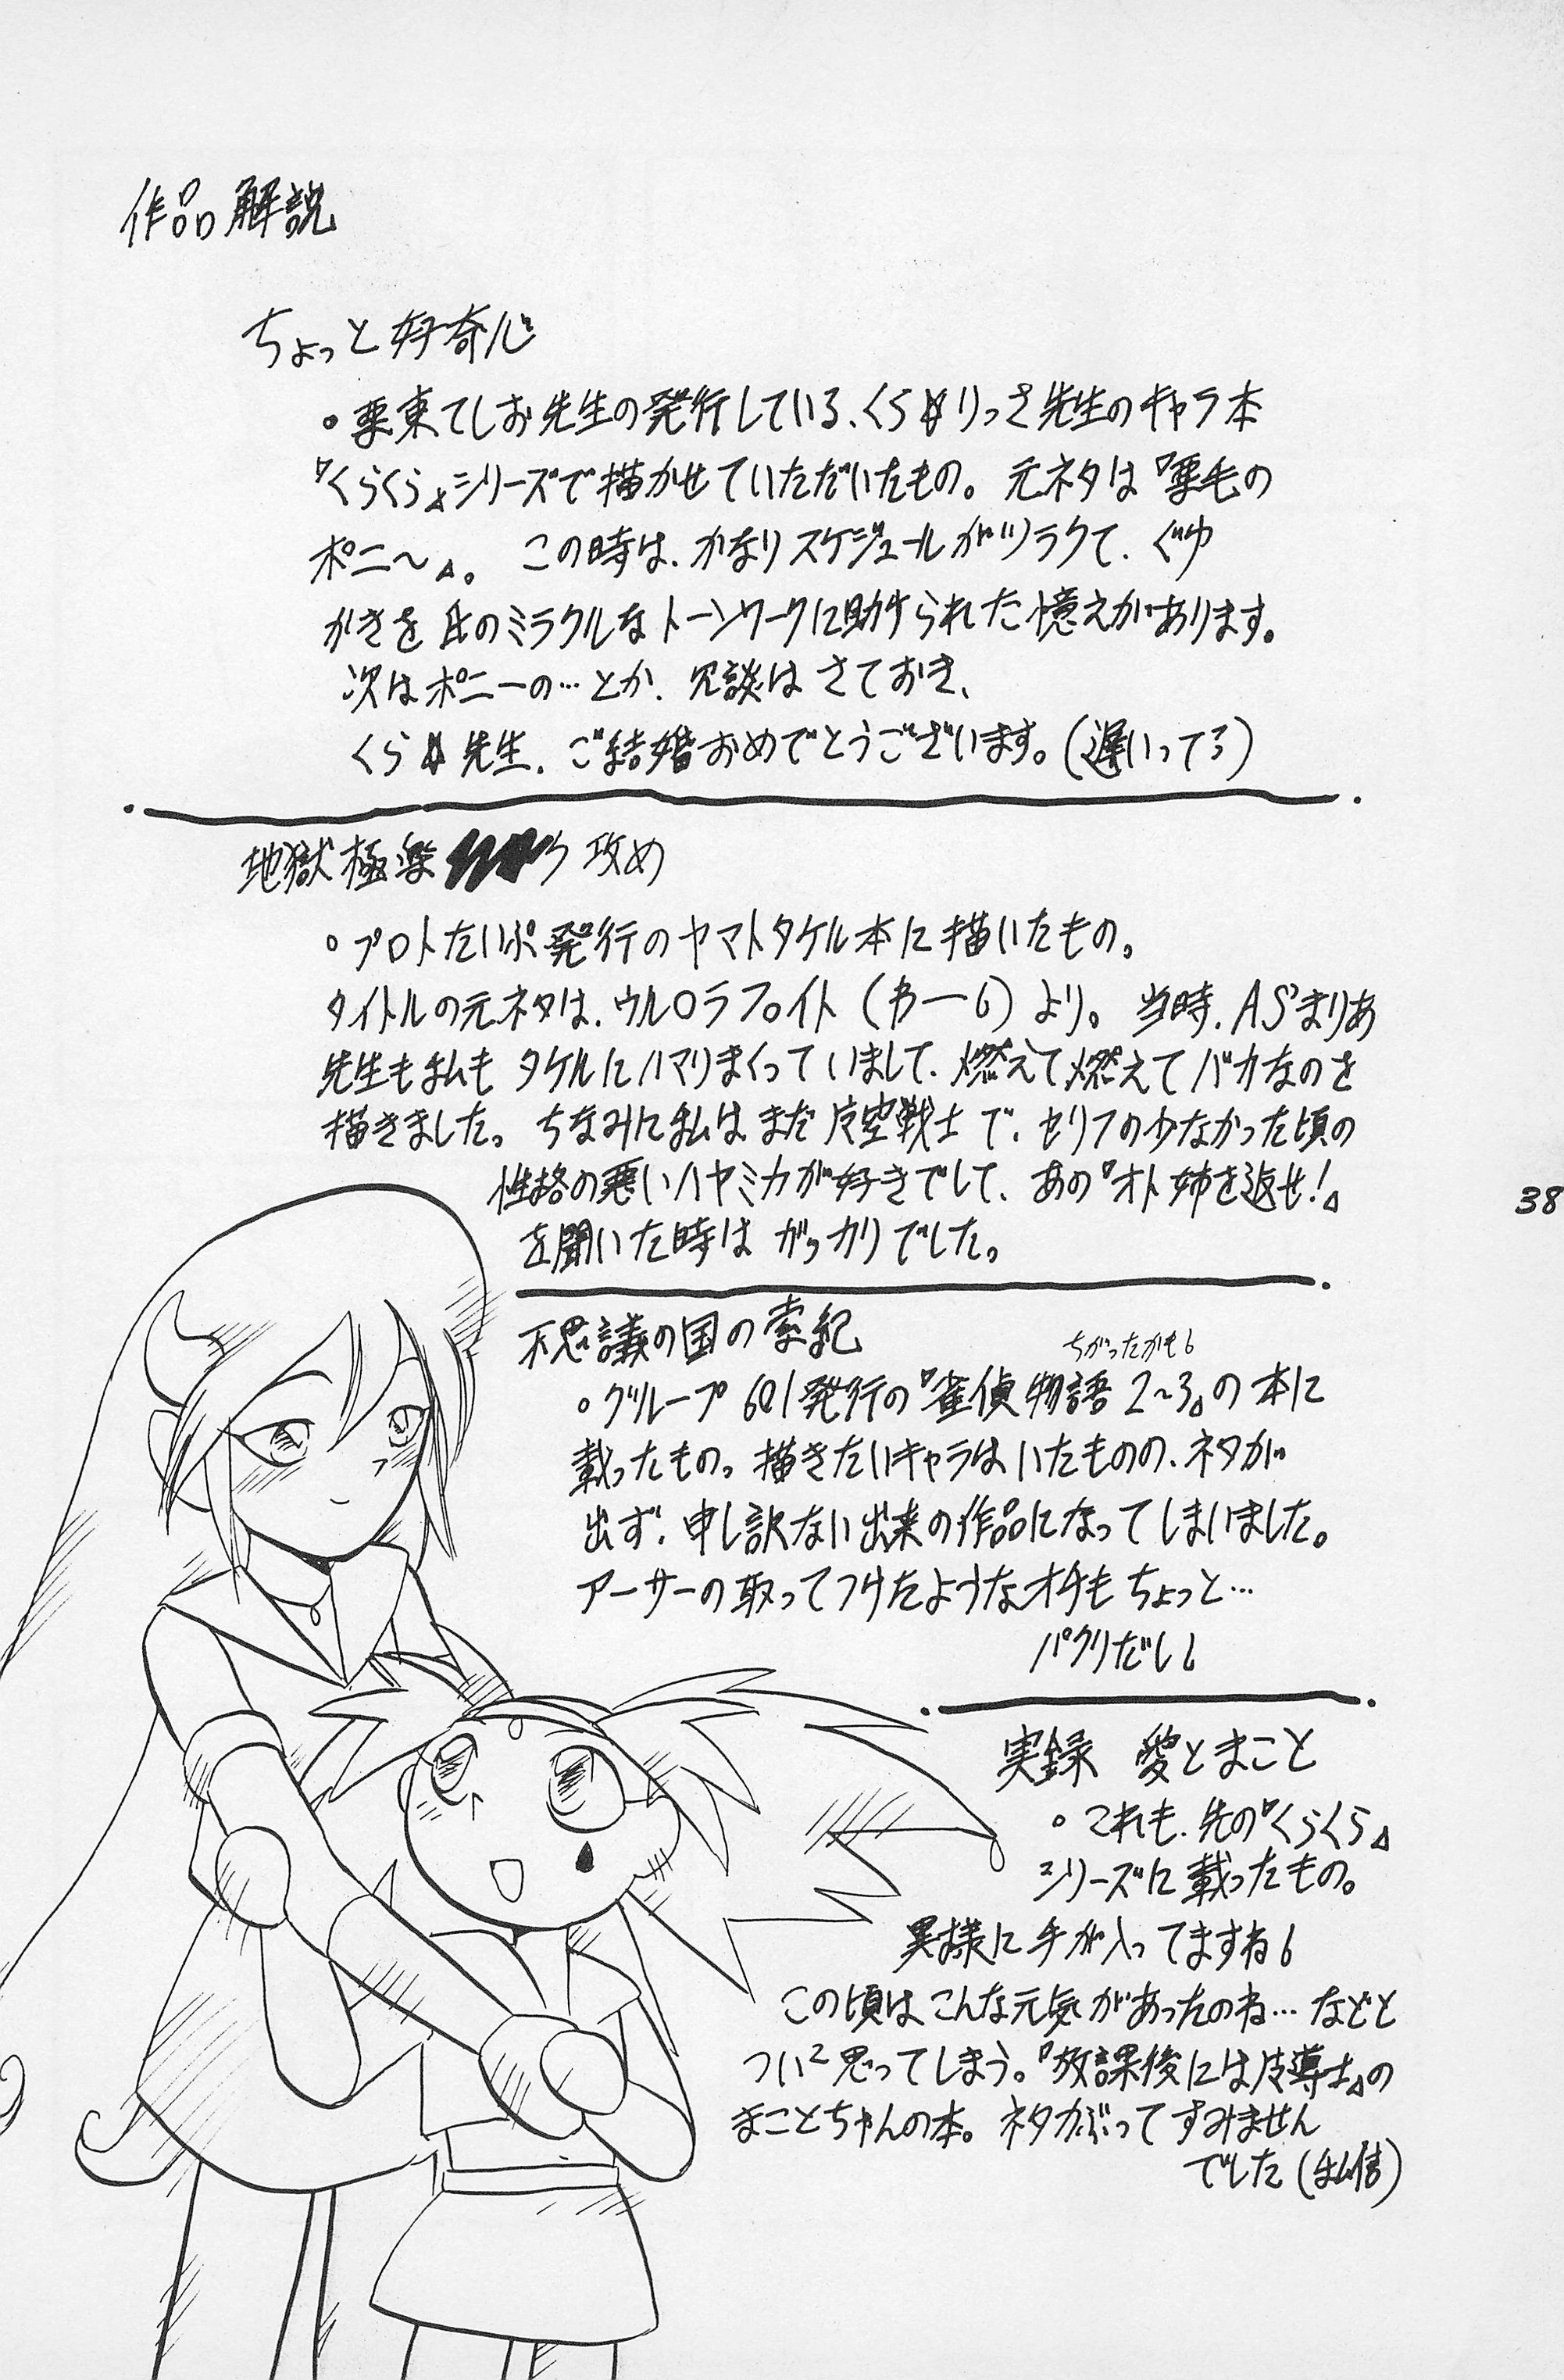 作品解説
ちょっと好奇心
・栗東てしお先生の発行している、くら☆りっさ先生のキャラ本
『くらくら』シリーズで描かせていただいたもの。元ネタは『栗毛の
ポニー〜』。この時は、かなりスケジュールがツラクて、ぐゆ
かきを氏のミラクルなトーンワークに助けられた憶えがあります。
次はポニーの…とか、冗談はさておき、
くら☆先生、ご結婚おめでとうございます。(遅いってろ)
地獄極楽 攻め
・プロトたいぷ発行のヤマトタケル本に描いたもの。
タイトルの元ネタは、ウルロラファイト(わー6)より。当時、AS'まりあ
先生も私もタケルにハマりまくっていまして、燃えて燃えてバカなのを
描きました。ちなみに私はまだ 空戦士で、セリフの少なかった頃の
性格の悪いハヤミカが好きでして、あの『オト姉を返せ!』
を聞いた時はガッカリでした。
不思議の国の 紀
ちがったかも6
・グループ601発行の『雀偵物語2~3』の本に
載ったもの。描きたいキャラはいたものの、ネタが
出ず、申し訳ない出来の作品になってしまいました。
アーサーの取ってつけたようなオチもちょっと…
パクリだし6
実録 愛とまこと
・これも、先の『くらくら』
シリーズに載ったもの。
異様に手が入ってますね6
この頃はこんな元気があったのね…などと
つい2思ってしまう。『放課後には 導士』の
まことちゃんの本。ネタかぶってすみません
でした(私信)
38